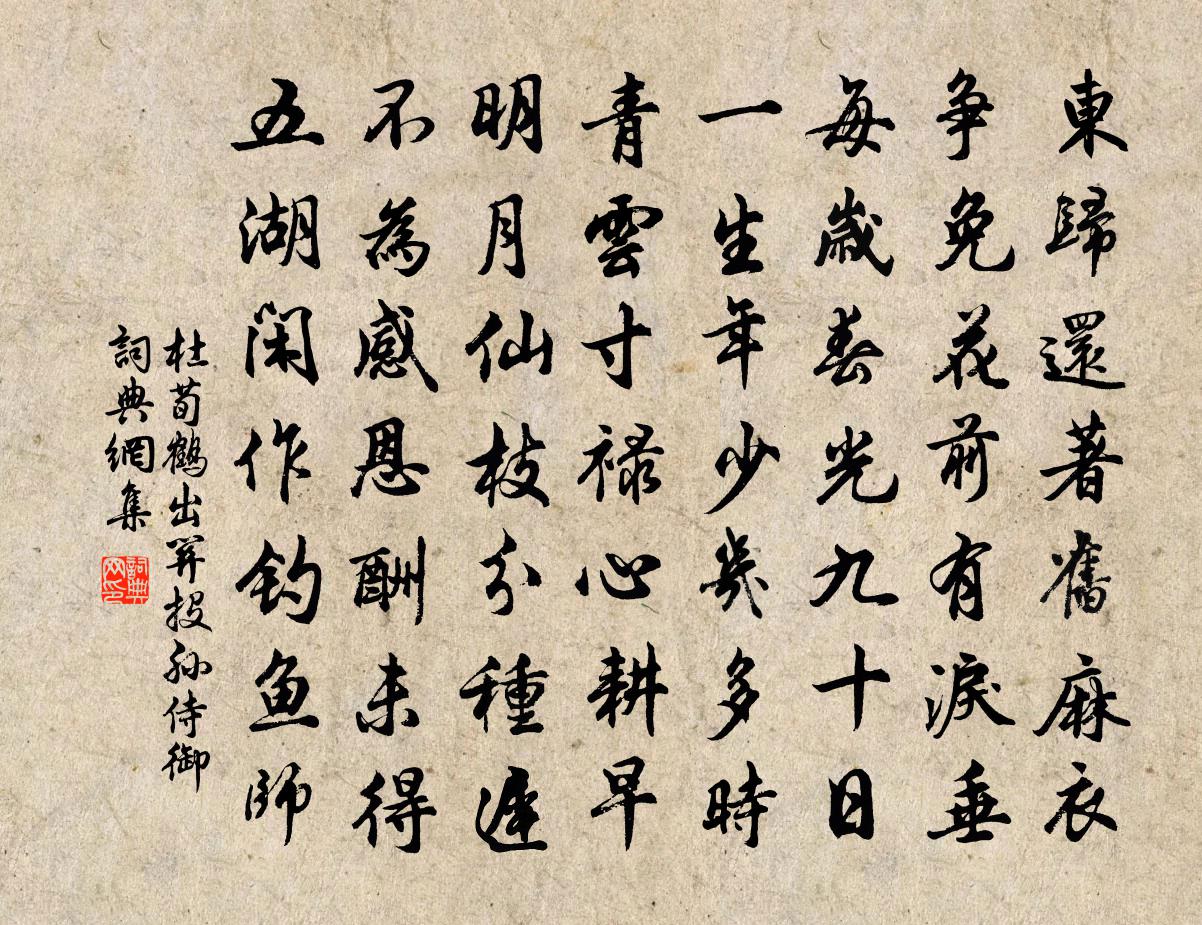 東歸還著舊麻衣
爭免花前有淚垂
每歲春光九十日
一生年少幾多時
青雲寸祿心耕早
明月仙枝分種遲
不為感恩酬未得
五湖閑作釣魚師
杜荀鶴出關投孫侍御
詞典網集
詞典網印